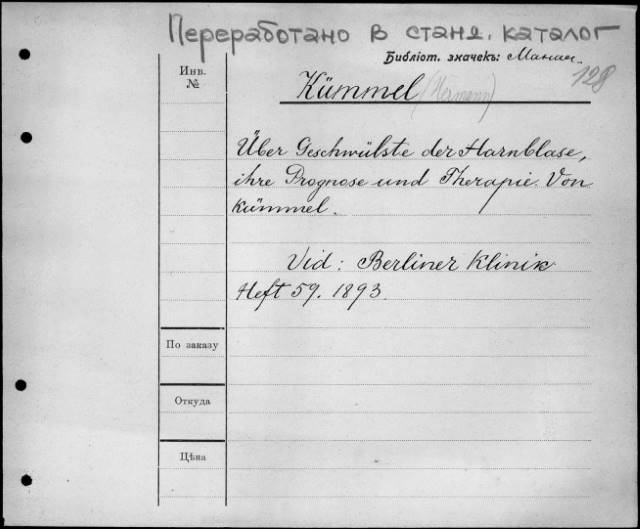 Переработано в станд. каталог
Библіот. значекъ:
128
Инв.
№
Kümmel (Hermann)
Über Geschwülste der Harnblase,
ihre Prognose und Therapie. Von
Kümmel.
Vid: Berliner Klinik
Heft 59. 1893.
По заказу
Откуда
Цѣна